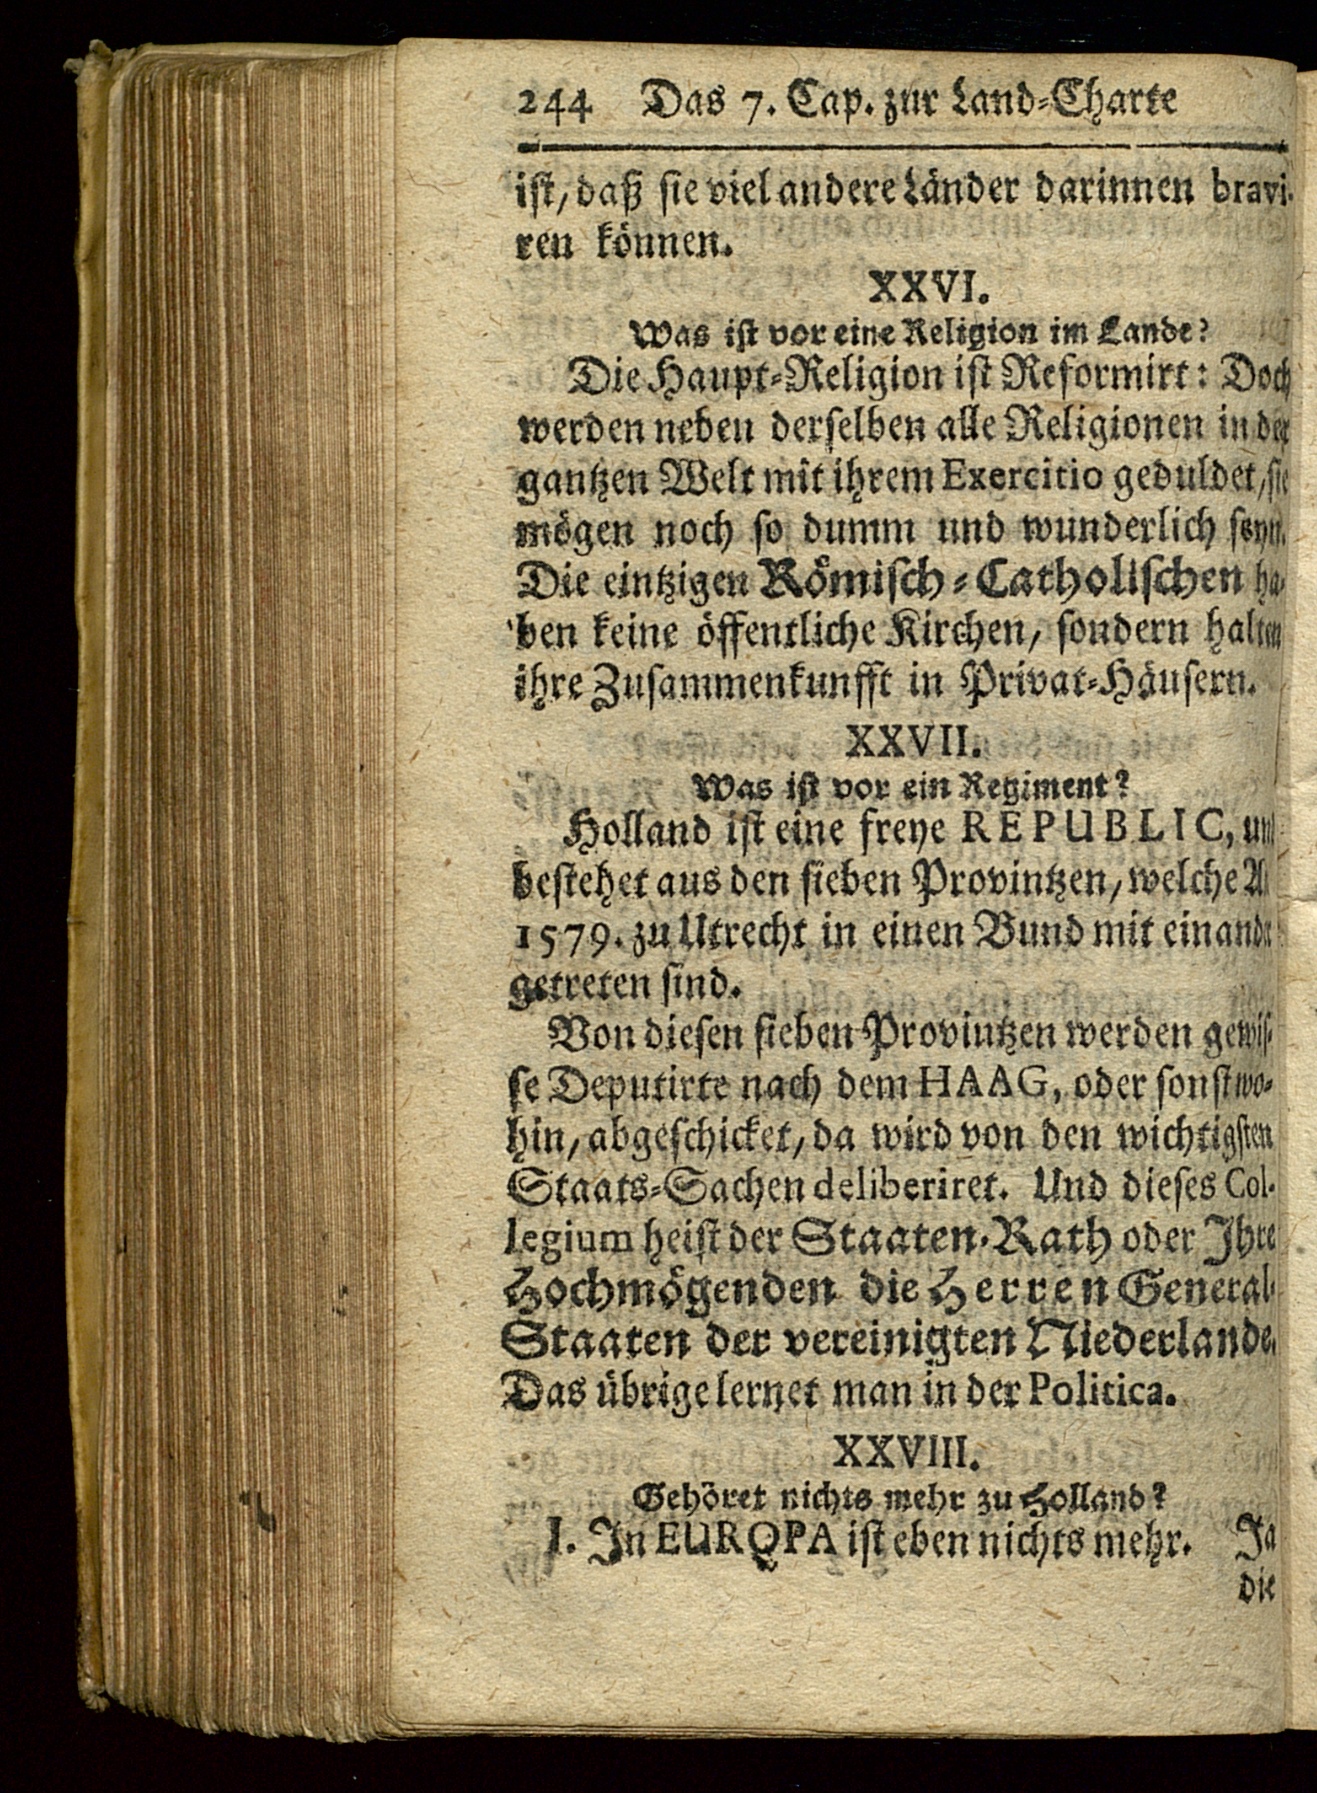 244 Das 7. Cap. zur Land-Charte
ist, daß sie viel andere Länder darinnen bravi-
ren können.
XXVI.
Was ist vor eine Religion im Lande?
Die Haupt-Religion ist Reformirt: Doch
werden neben derselben alle Religionen in der
gantzen Welt mit ihrem Exercitio geduldet, sie
mögen noch so dumm und wunderlich seyn.
Die eintzigen Römisch-Catholischen ha-
ben keine öffentliche Kirchen, sondern halten
ihre Zusammenkunfft in Privat-Häusern.
XXVII.
Was ist vor ein Regiment?
Holland ist eine freye REPUBLIC, und
bestehet aus den sieben Provintzen, welche A.
1579. zu Utrecht in einen Bund mit einander
getreten sind.
Von diesen sieben Provintzen werden gewis-
se Deputirte nach dem HAAG, oder sonst wo-
hin, abgeschicket, da wird von den wichtigsten
Staats-Sachen deliberiret. Und dieses Col-
legium heist der Staaten-Rath oder Ihre
Hochmögenden die Herren General-
Staaten der vereinigten Niederlande.
Das übrige lernet man in der Politica.
XXVIII.
Gehöret nichts mehr zu Holland?
I. In EUROPA ist eben nichts mehr. Ja
die